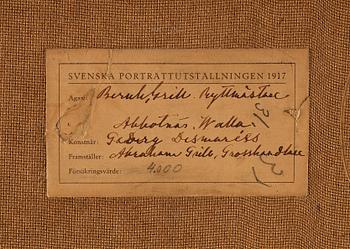 SVENSKA PORTRÄTTUTSTÄLLNINGEN 1917
Ägare: Bernh. Grill Ryttmästare
Abbotnäs, Walla.
Konstnär: Georg Desmarées
Framställer: Abraham Grill, Grosshandlare
Försäkringsvärde: 4000